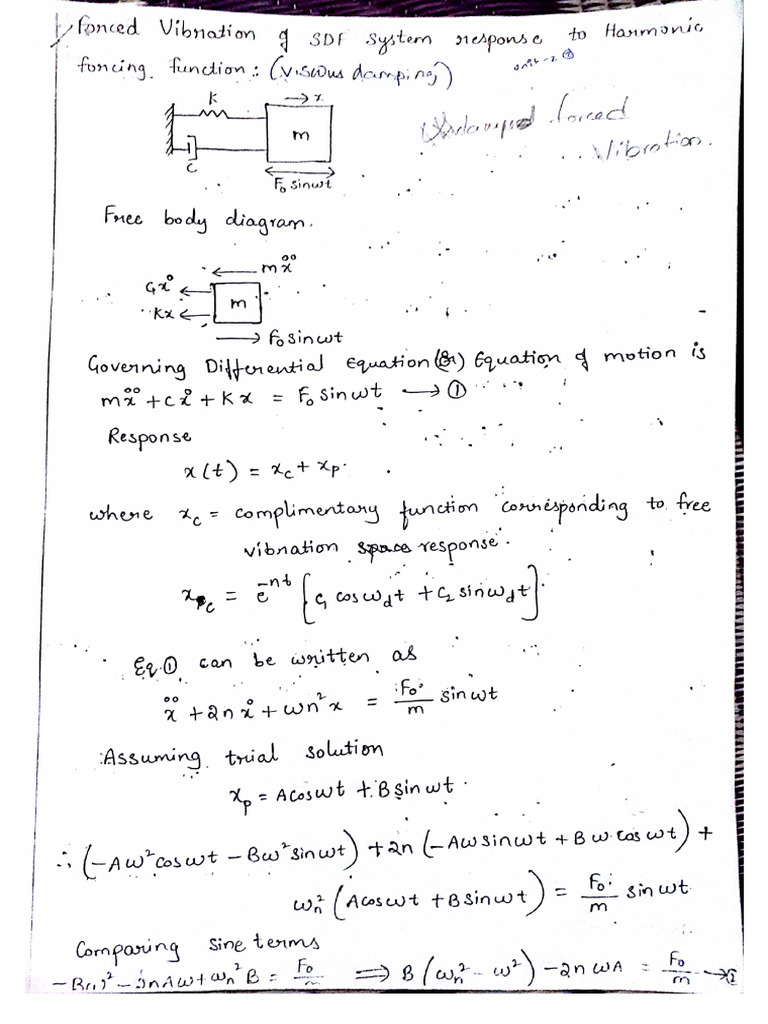 Forced Vibration of SDF System response to Harmonic
forcing function: (Viscous damping)
unit-2
Undamped forced
Vibration.
K
→ x
m
C
F₀ sinωt
Free body diagram.
mẍ
Cẋ
Kx
m
F₀ sinωt
Governing Differential Equation (or) Equation of motion is
mẍ + cẋ + Kx = F₀ sinωt → ①
Response
x(t) = x_c + x_p.
where x_c = complimentary function corresponding to free
vibration response.
x_c = e^{-nt} [C₁ cosω_d t + C₂ sinω_d t].
Eq.① can be written as
ẍ + 2nẋ + ωn²x = F₀/m sinωt
Assuming trial solution
x_p = Acosωt + Bsinωt.
∴ (-Aω²cosωt - Bω²sinωt) + 2n (-Aωsinωt + Bω cosωt) +
ω_n² (Acosωt + Bsinωt) = F₀/m sinωt
Comparing sine terms
-Bω² - 2nAω + ω_n²B = F₀/m ⟹ B(ω_n² - ω²) - 2nωA = F₀/m →